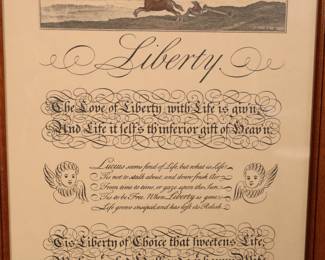 Liberty.
The Love of Liberty with Life is giv'n,
And Life it self's th'inferior gift of Heav'n.
Lucius seems fond of Life, but what is Life
'Tis not to stalk about and draw fresh Air
From time to time, or gaze upon the Sun,
'Tis to be Free. When Liberty is gone
Life grows insipid, and has lost its Relish.
'Tis Liberty of Choice that sweetens Life,